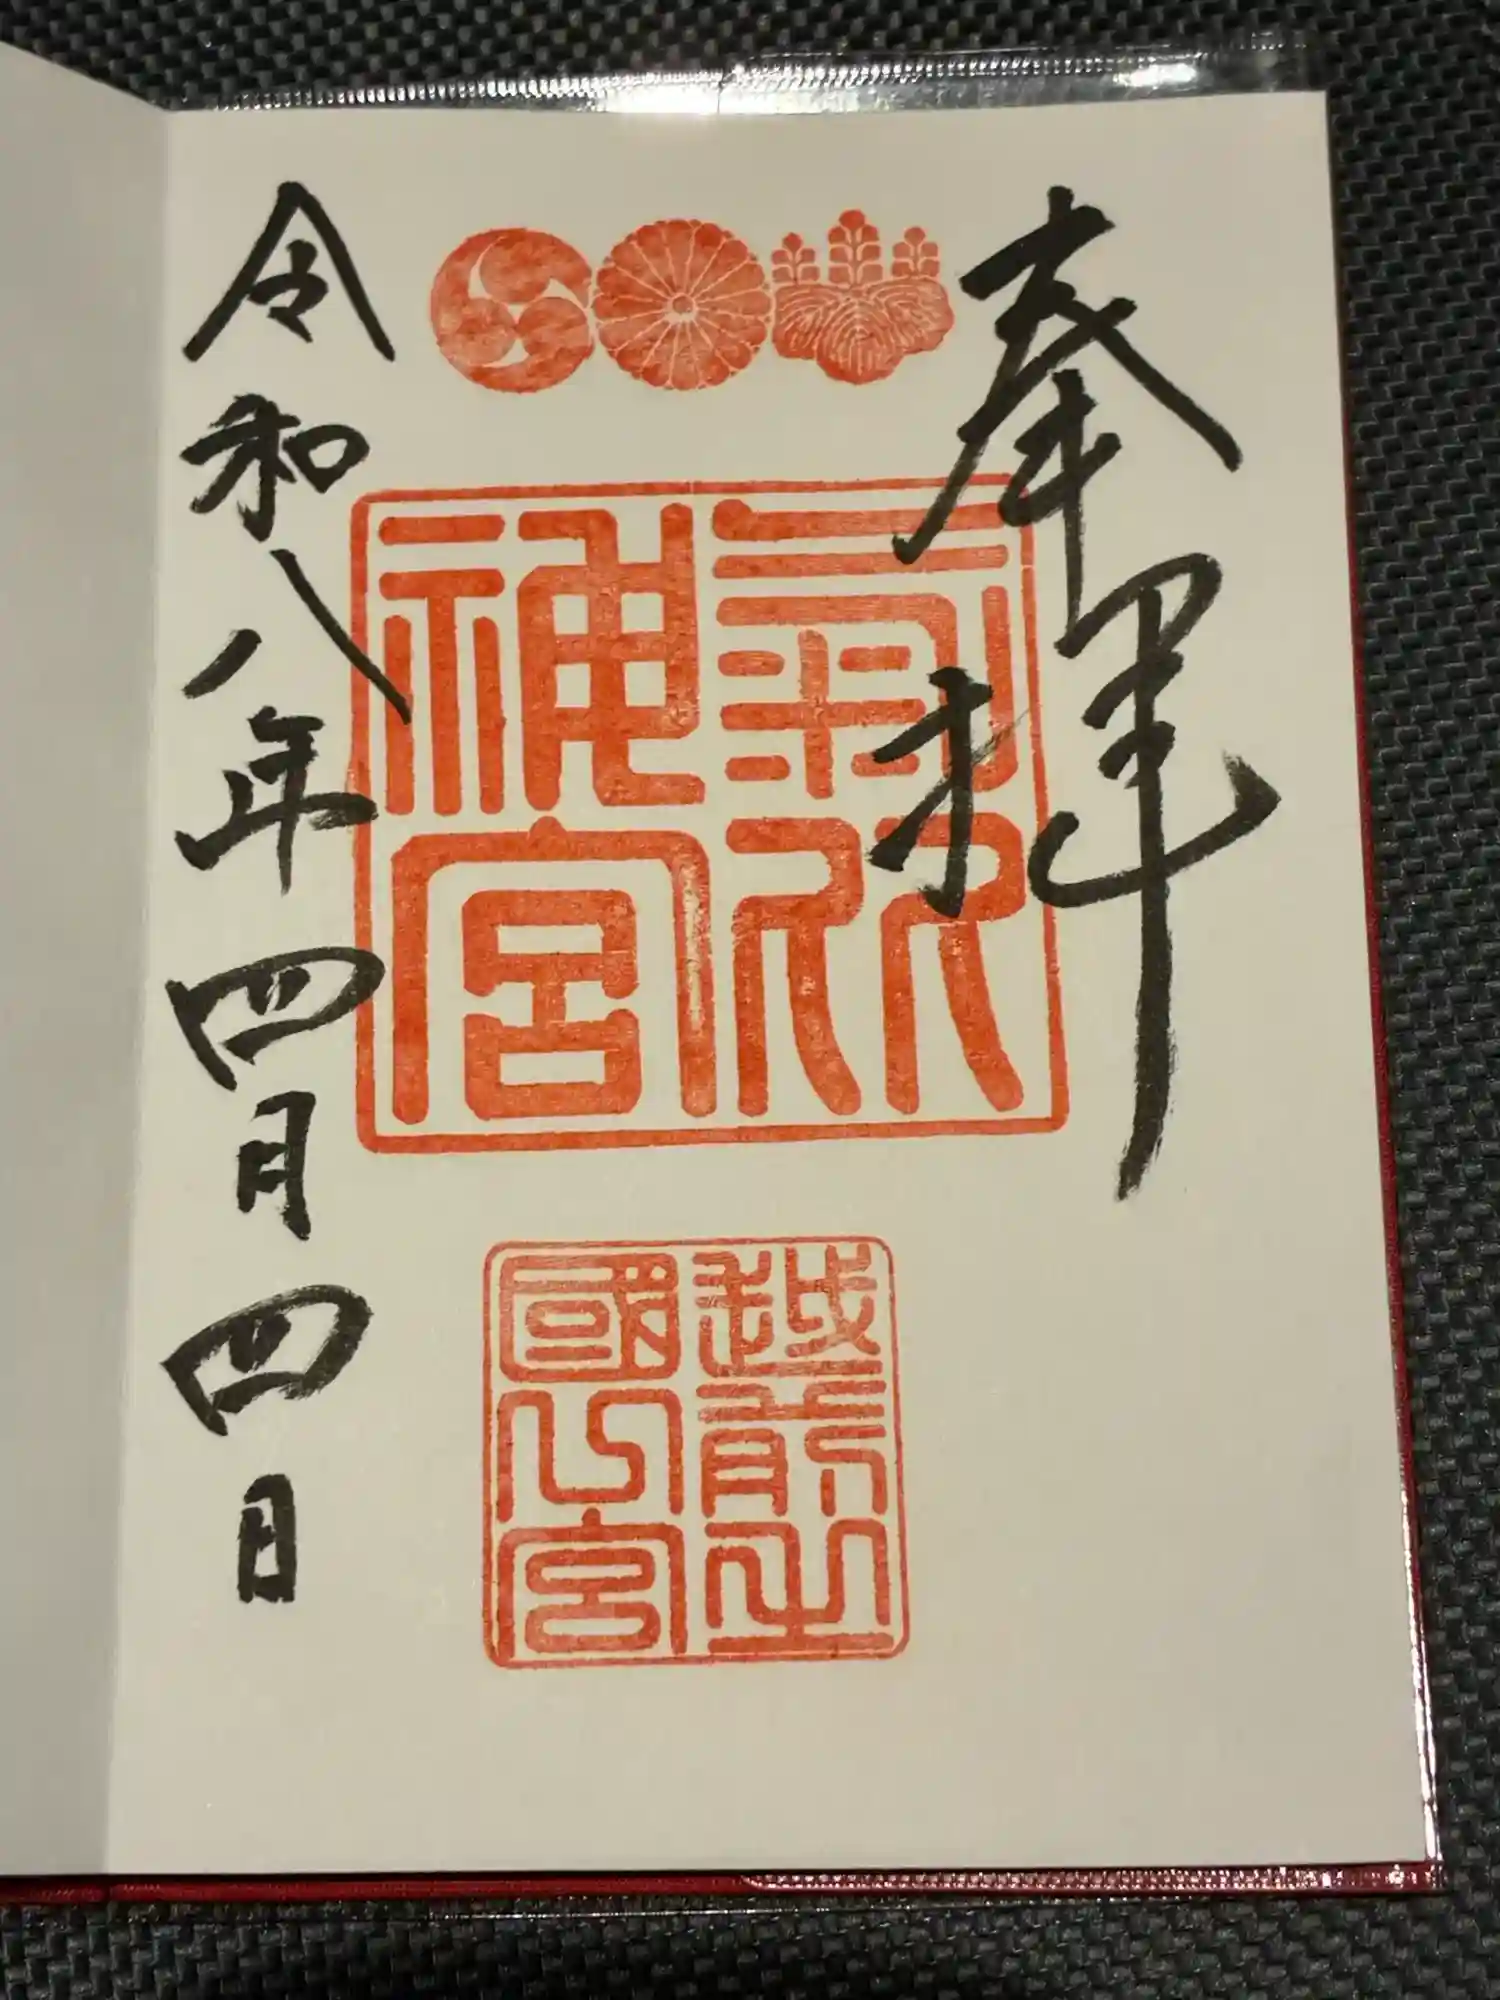 奉拜
氣比
神宮
越前之
國一宮
令和八年四月四日